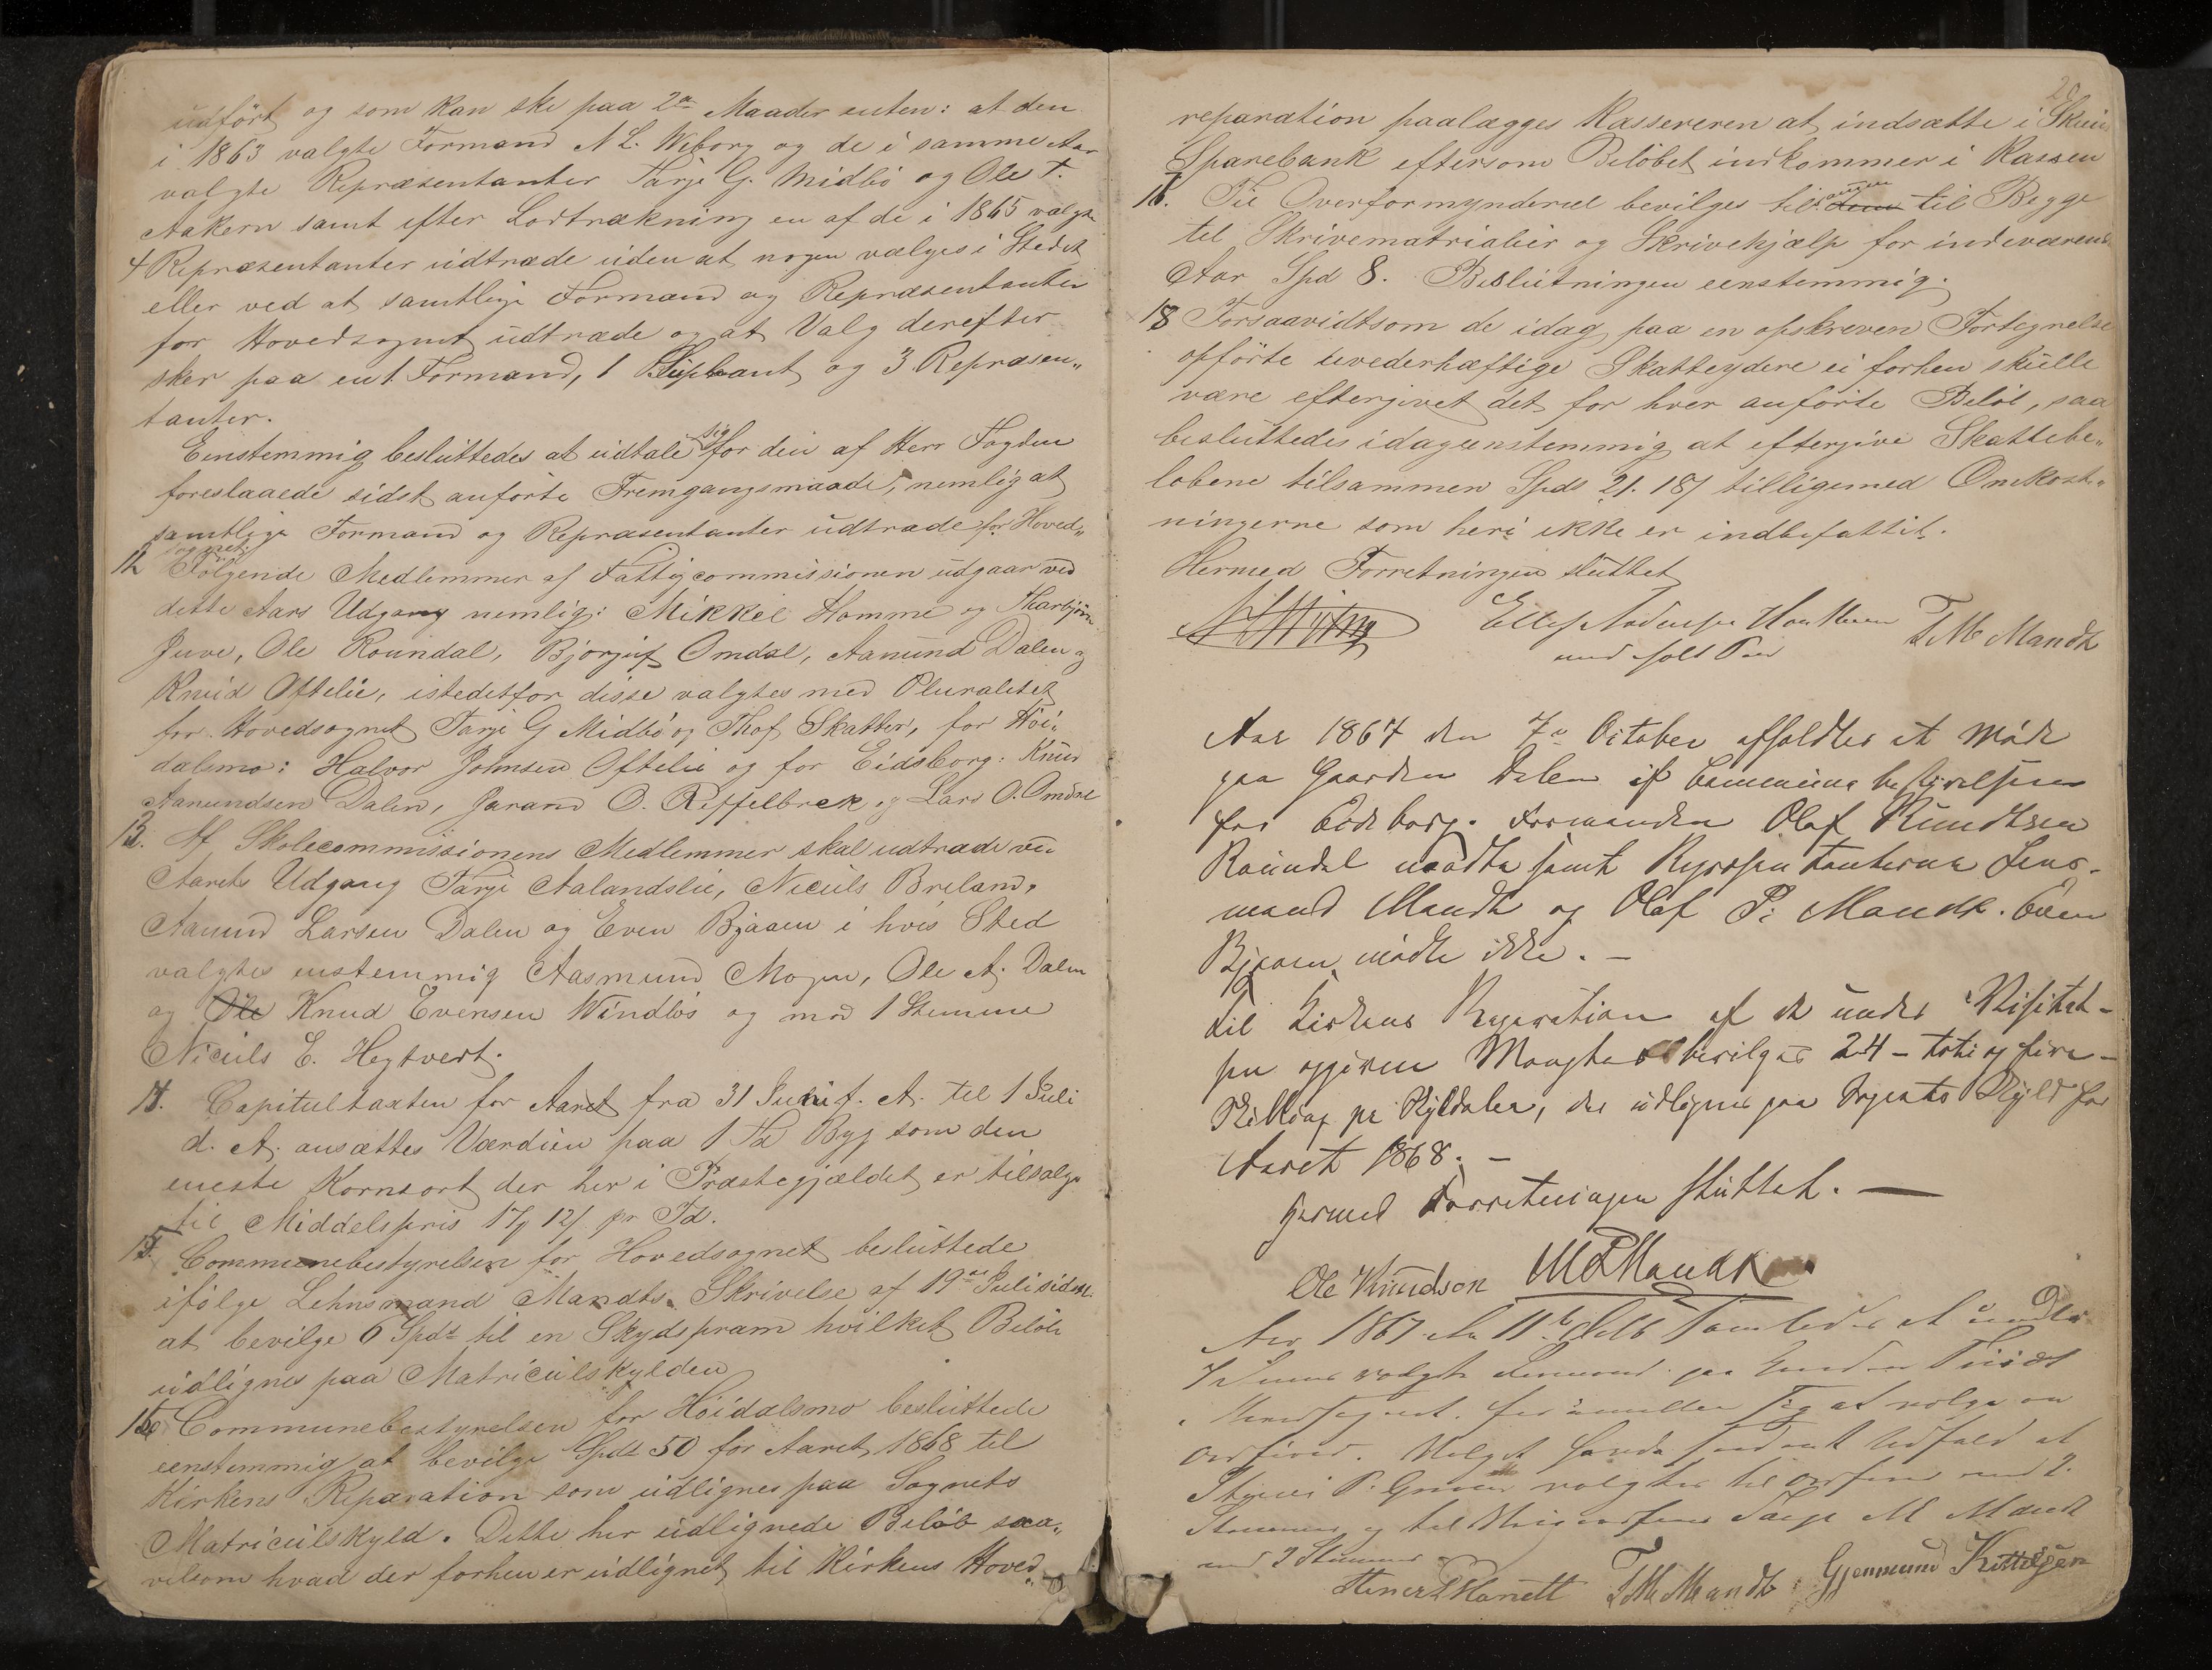 udført og som kan ske paa 2de Maader enten: at den
i 1863 valgte Formand N L. Wiborg og de i samme Aar
valgte Repræsentanter Tarje G. Midbö og Ole T.
Aakern samt efter Lodtrækning en af de i 1865 valgte
4 Repræsentanter udtræde uden at nogen vælges i Stedet
eller ved at samtlige Formænd og Repræsentanter
for Hovedsognet udtræde og at Valg derefter
sker paa en 1 Formand, 1 Supleant og 3 Repræsen„
tanter.
Eenstemmig besluttedes at udtale sig for den af Herr Fogden
foreslaaede sidst anførte Fremgangsmaade, nemlig at
samtlige Formænd og Repræsentanter udtræde for Hoved„
sognet.
12 Følgende Medlemmer af Fattigcommissionen udgaar ved
dette Aars Udgang nemlig: Mikkel Homme og Tharbjörn
Juve, Ole Roindal, Björguf Omdal, Aanund Dalen og
Knud Oftelie, istedetfor disse valgtes med Pluralitet
for Hovedsognet Tarje G Midbö og Thof Skatter, for Höi„
dalsmo: Halvor Johnsen Oftelie og for Eidsborg: Knud
Aanundsen Dalen, Jarand O. Reffelbrek og Lars O. Omdal
13. Af Skolecommissionens Medlemmer skal udtræde ved
Aarets Udgang Tarje Aalandslie, Niculs Breland,
Aanund Larsen Dalen og Even Bjaaen i hvis Sted
valgtes enstemmig Aasmund Mogen, Ole A. Dalen
og Ole Knud Evensen Windlös og med 1 Stemme
Niculs E. Hegtvert.
14. Capitultaxten for Aaret fra 31 Juni f. A. til 1 Juli
d. A. ansættes Værdien paa 1 Td Byg som den
eneste Kornsort der her i Præstegjældet er tilsalgs
til Middelspris 17 12 pr Td.
15. Communebestyrelsen for Hovedsognet besluttede
ifølge Lehnsmand Mandts Skrivelse af 19de Juli sidstl.
at bevilge 6 Spd til en Skydspram hvilket Beløb
udlignes paa Matriculskylden
16 Communebestyrelsen for Höidalsmo besluttede
eenstemmig at bevilge Spd 50 for Aaret 1868 til
Kirkens Reparation som udlignes paa Sognets
Matriculskyld. Dette her udlignede Beløb saa„
velsom hvad der forhen er udlignet til Kirkens Hoved„
20
reparation paalægges Kassereren at indsætte i Skiens
Sparebank eftersom Beløbet indkommer i Kassen
Til Overformynderiet bevilges til dem til Begge
til Skrivematrialier og Skrivehjælp for indeværende
Aar Spd 8. Beslutningen eenstemmig.
18 Forsaavidtsom de idag paa en opskreven Fortegnelse
opførte uvederhæftige Skatteydere ei forhen skulle
være eftergivet det for hver anførte Beløb, saa
besluttedes idag enstemmig at eftergive Skattebe„
løbene tilsammen Spds 21. 18 tilligemed Omkost„
ningerne som heri ikke er indbefattet.
Hermed Forretningen sluttet
T M Mandt
med holdt Pen
Aar 1867 den 7de October afholdtes et Møde
paa Gaarden Dalen af Communebestyrelsen
for Eidsborg. Formanden Olaf Knudtsen
Roindal mødte samt Repræsentanterne Lens-
mand Mandt og Olaf P: Mandt. Even
Bjaaen mødte ikke. –
Til Kirkens Reparation af de under Visitat-
sen opgivne Mangler bevilges 24 – toti og fire –
Skilling pr Skyldaler, der udlignes paa Sognets Skyld for
Aaret 1868. –
Hermed Forretningen sluttet. —
Ole Knudson M L Mandt
Aar 1867 den 11te Octb samledes et under
valgte Formænd paa Gaarden
Hovedsognet. for imellem sig at vælge en
Ordfører. Valget havde saadant Udfald at
P. valgtes til Ordfører med 2
Stemmer og til Viceordfører Tarje M Mandt
med 2 Stemmer
T M Mandt Gjermund Kittilsen